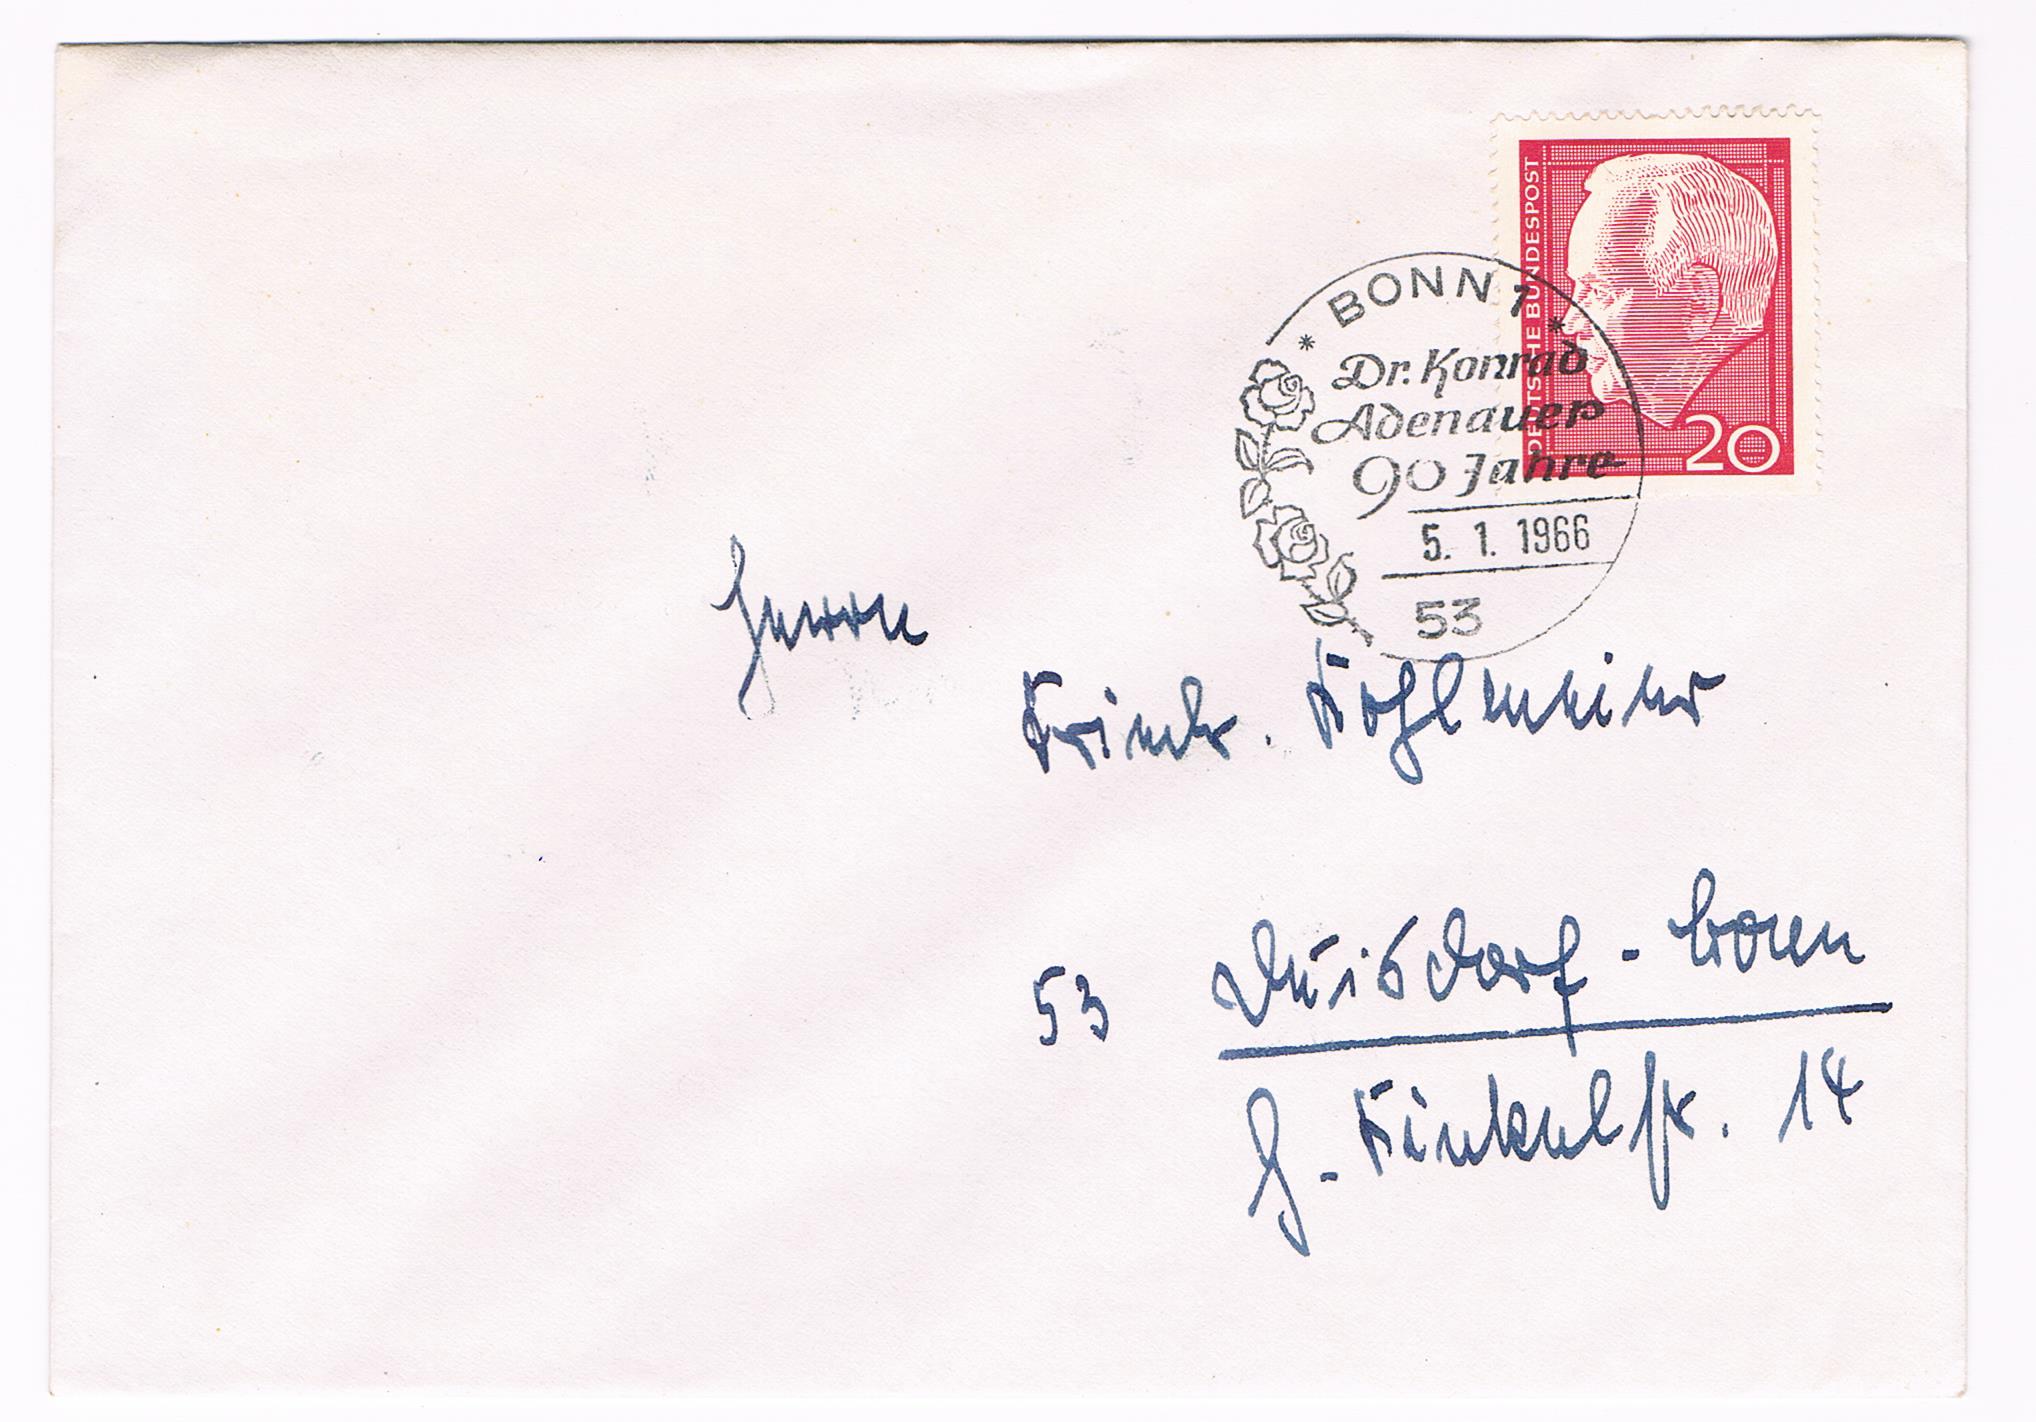 DEUTSCHE BUNDESPOST
20
BONN 1
Dr. Konrad
Adenauer
90 Jahre
5. 1. 1966
53
Herrn
Friedr. Kohlmeier
53 Duisdorf - Bonn
H. - Finkelstr. 14